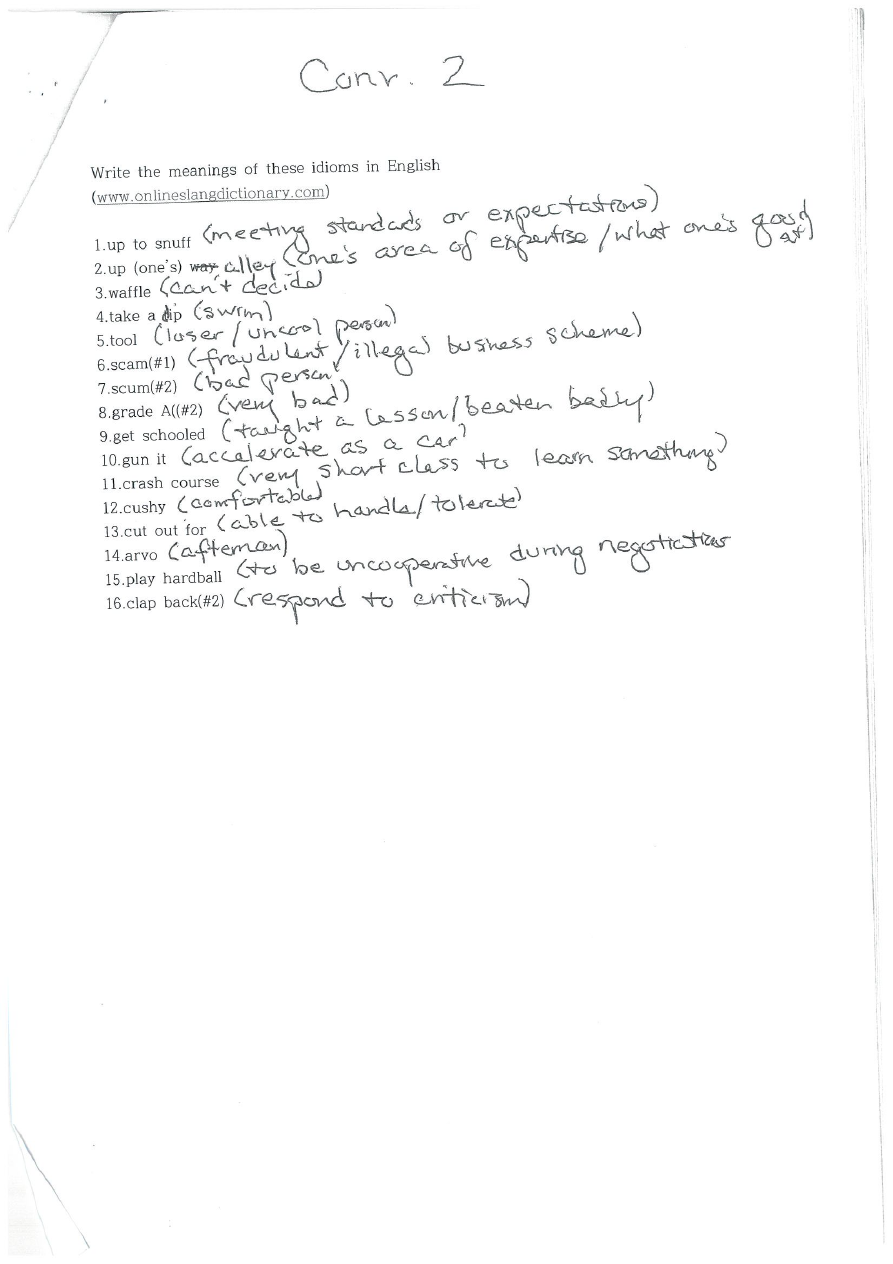 Conv. 2
Write the meanings of these idioms in English
(www.onlineslangdictionary.com)
1.up to snuff (meeting standads or expectations)
2.up (one's) way alley (one's area of expertise/what one's good at)
3.waffle (can't decide)
4.take a dip (swim)
5.tool (loser/uncool person)
6.scam(#1) (fraudulent/illegal business scheme)
7.scum(#2) (bad person)
8.grade A((#2) (very bad)
9.get schooled (taught a lesson/beaten badly)
10.gun it (accelerate as a car)
11.crash course (very short class to learn something)
12.cushy (comfortable)
13.cut out for (able to handle/tolerate)
14.arvo (afternoon)
15.play hardball (to be uncooperative during negotiations
16.clap back(#2) (respond to criticism)